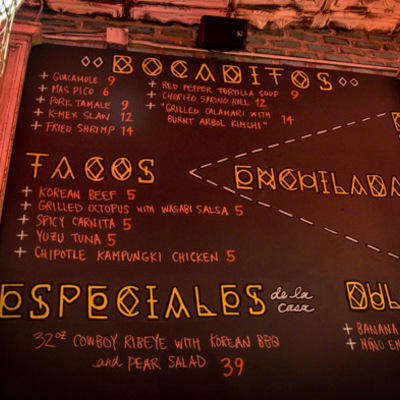 BOCADITOS
+ GUACAMOLE 9
+ MAS PICO 6
+ PORK TAMALE 9
+ K-MEX SLAW 12
+ FRIED SHRIMP 14
+ RED PEPPER TORTILLA SOUP 9
+ CHORIZO SPRING ROLL 12
+ "GRILLED CALAMARI WITH
BURNT ARBOL KIMCHI" 14
TACOS
+ KOREAN BEEF 5
+ GRILLED OCTOPUS WITH WASABI SALSA 5
+ SPICY CARNITA 5
+ YUZU TUNA 5
+ CHIPOTLE KAMPUNGKI CHICKEN 5
ENCHILADA
ESPECIALES de la
casa
32oz COWBOY RIBEYE WITH KOREAN BBQ
and PEAR SALAD 39
DUL
+ BANANA
+ NIÑO EN